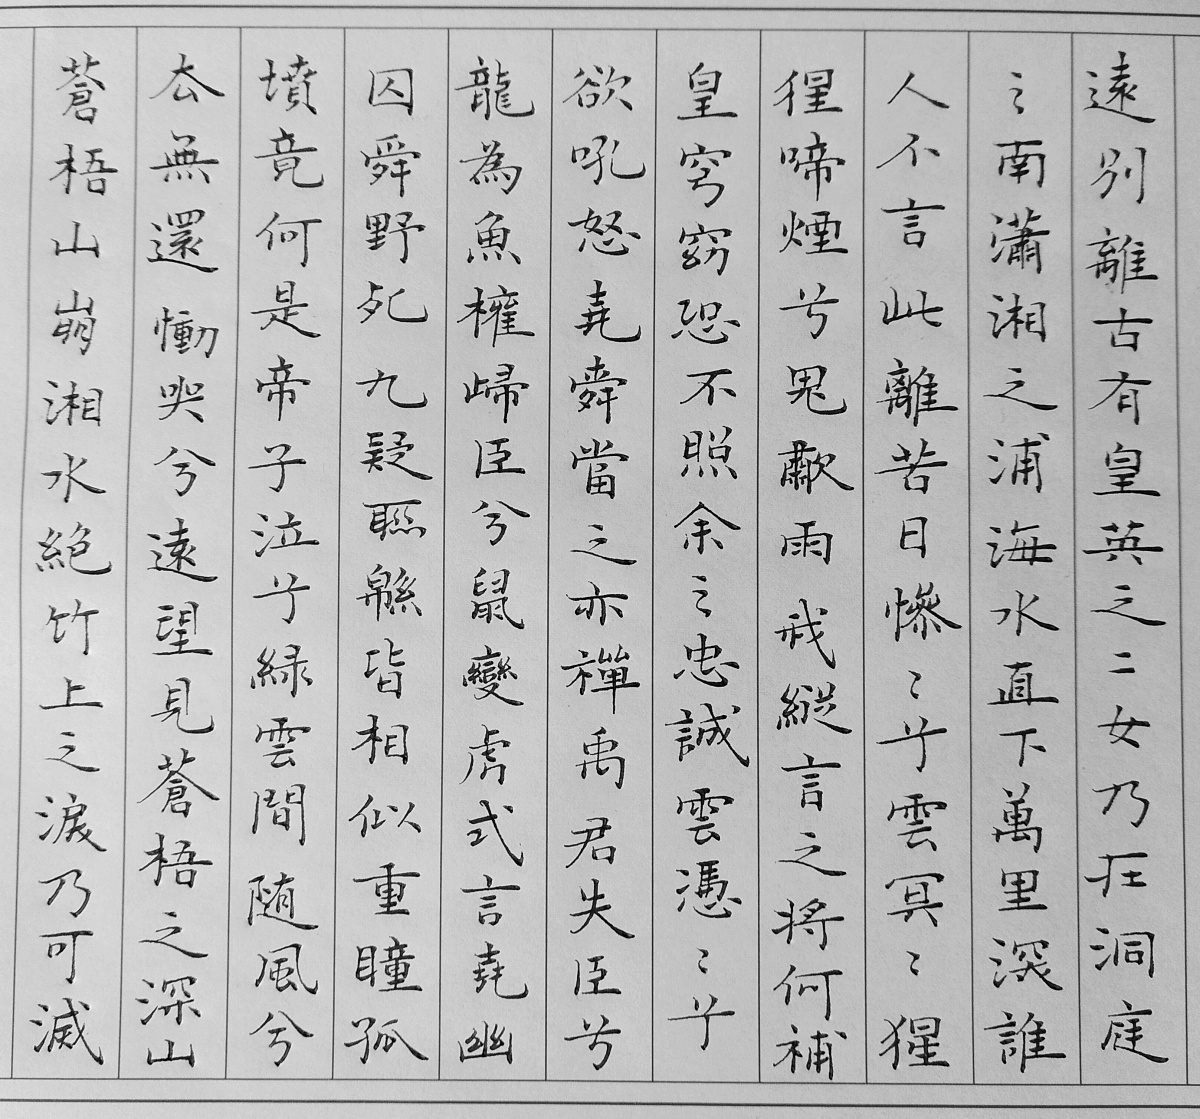 遠別離古有皇英之二女乃在洞庭
之南瀟湘之浦海水直下萬里深誰
人不言此離苦日慘〻兮雲冥〻猩
猩啼煙兮鬼歗雨我縱言之將何補
皇穹竊恐不照余之忠誠雲憑〻兮
欲吼怒堯舜當之亦禪禹君失臣兮
龍為魚權歸臣兮鼠變虎或言堯幽
囚舜野死九疑聯緜皆相似重瞳孤
墳竟何是帝子泣兮綠雲間随風兮
去無還慟哭兮遠望見蒼梧之深山
蒼梧山崩湘水絕竹上之淚乃可滅